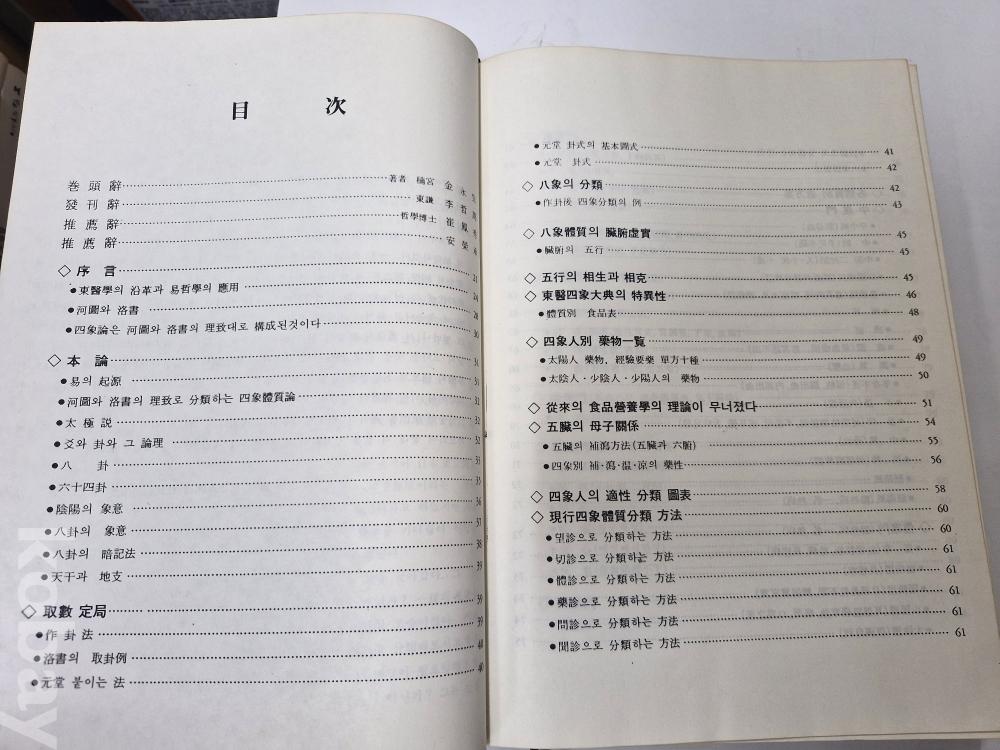 目 次
卷頭辭 著者 楠宮 金永
發刊辭 東謙 李哲
推薦辭 哲學博士 崔鳳
推薦辭 安榮
◇ 序 言 21
●東醫學의 沿革과 易哲學의 應用 24
●河圖와 洛書 28
●四象論은 河圖와 洛書의 理致대로 構成된것이다 30
◇ 本 論 31
●易의 起源 31
●河圖와 洛書의 理致로 分類하는 四象體質論 31
●太 極 説 31
●爻와 卦와 그 論理 32
●八 卦 33
●六十四卦 35
●陰陽의 象意 36
●八卦의 象意 37
●八卦의 暗記法 38
●天干과 地支 39
◇ 取數 定局 39
●作 卦 法 39
●洛書의 取卦例 40
●元堂 붙이는 法 40
●元堂 卦式의 基本圖式 41
●元堂 卦式 42
◇ 八象의 分類 42
●作卦後 四象分類의 例 43
◇ 八象體質의 臟腑虛實 45
●臟腑의 五行 45
◇ 五行의 相生과 相克 45
◇ 東醫四象大典의 特異性 46
●體質別 食品表 48
◇ 四象人別 藥物一覧 49
●太陽人 藥物, 經驗要藥 單方十種 49
●太陰人·少陰人·少陽人의 藥物 50
◇ 從來의 食品營養學의 理論이 무너졌다 51
◇ 五臟의 母子關係 54
●五臟의 補瀉方法(五臟과 六腑) 55
●四象別 補·瀉·温·凉의 藥性 56
◇ 四象人의 適性 分類 圖表 58
◇ 現行四象體質分類 方法 60
●望診으로 分類하는 方法 60
●切診으로 分類하는 方法 61
●體診으로 分類하는 方法 61
●藥診으로 分類하는 方法 61
●問診으로 分類하는 方法 61
●聞診으로 分類하는 方法 61
kobay